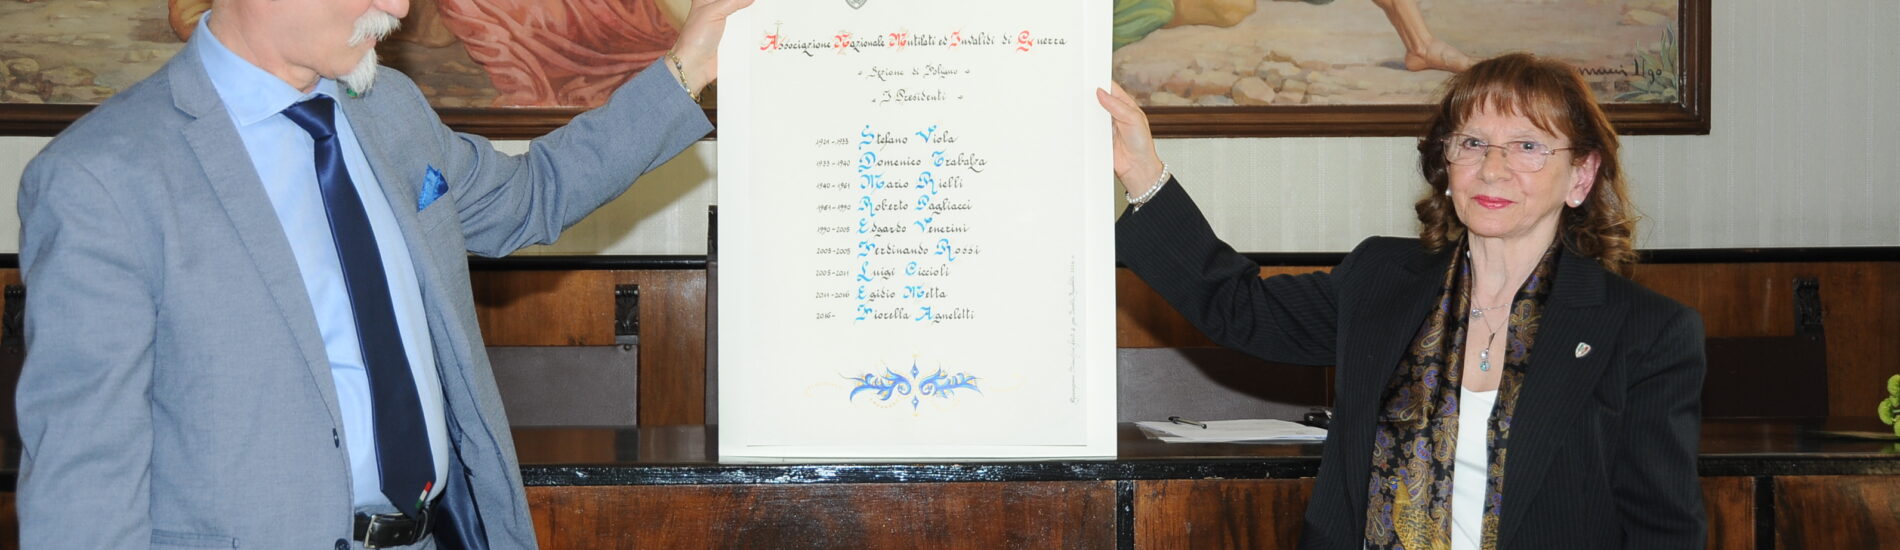 Associazione Nazionale Mutilati ed Invalidi di Guerra
Sezione di Foligno
I Presidenti
1921-1933 Stefano Viola
1933-1940 Domenico Trabalza
1940-1961 Mario Rielli
1961-1990 Roberto Pagliacci
1990-2003 Edgardo Venerini
2003-2005 Ferdinando Rossi
2005-2011 Luigi Ciccioli
2011-2016 Egidio Metta
2016- Fiorella Agneletti
Ugo